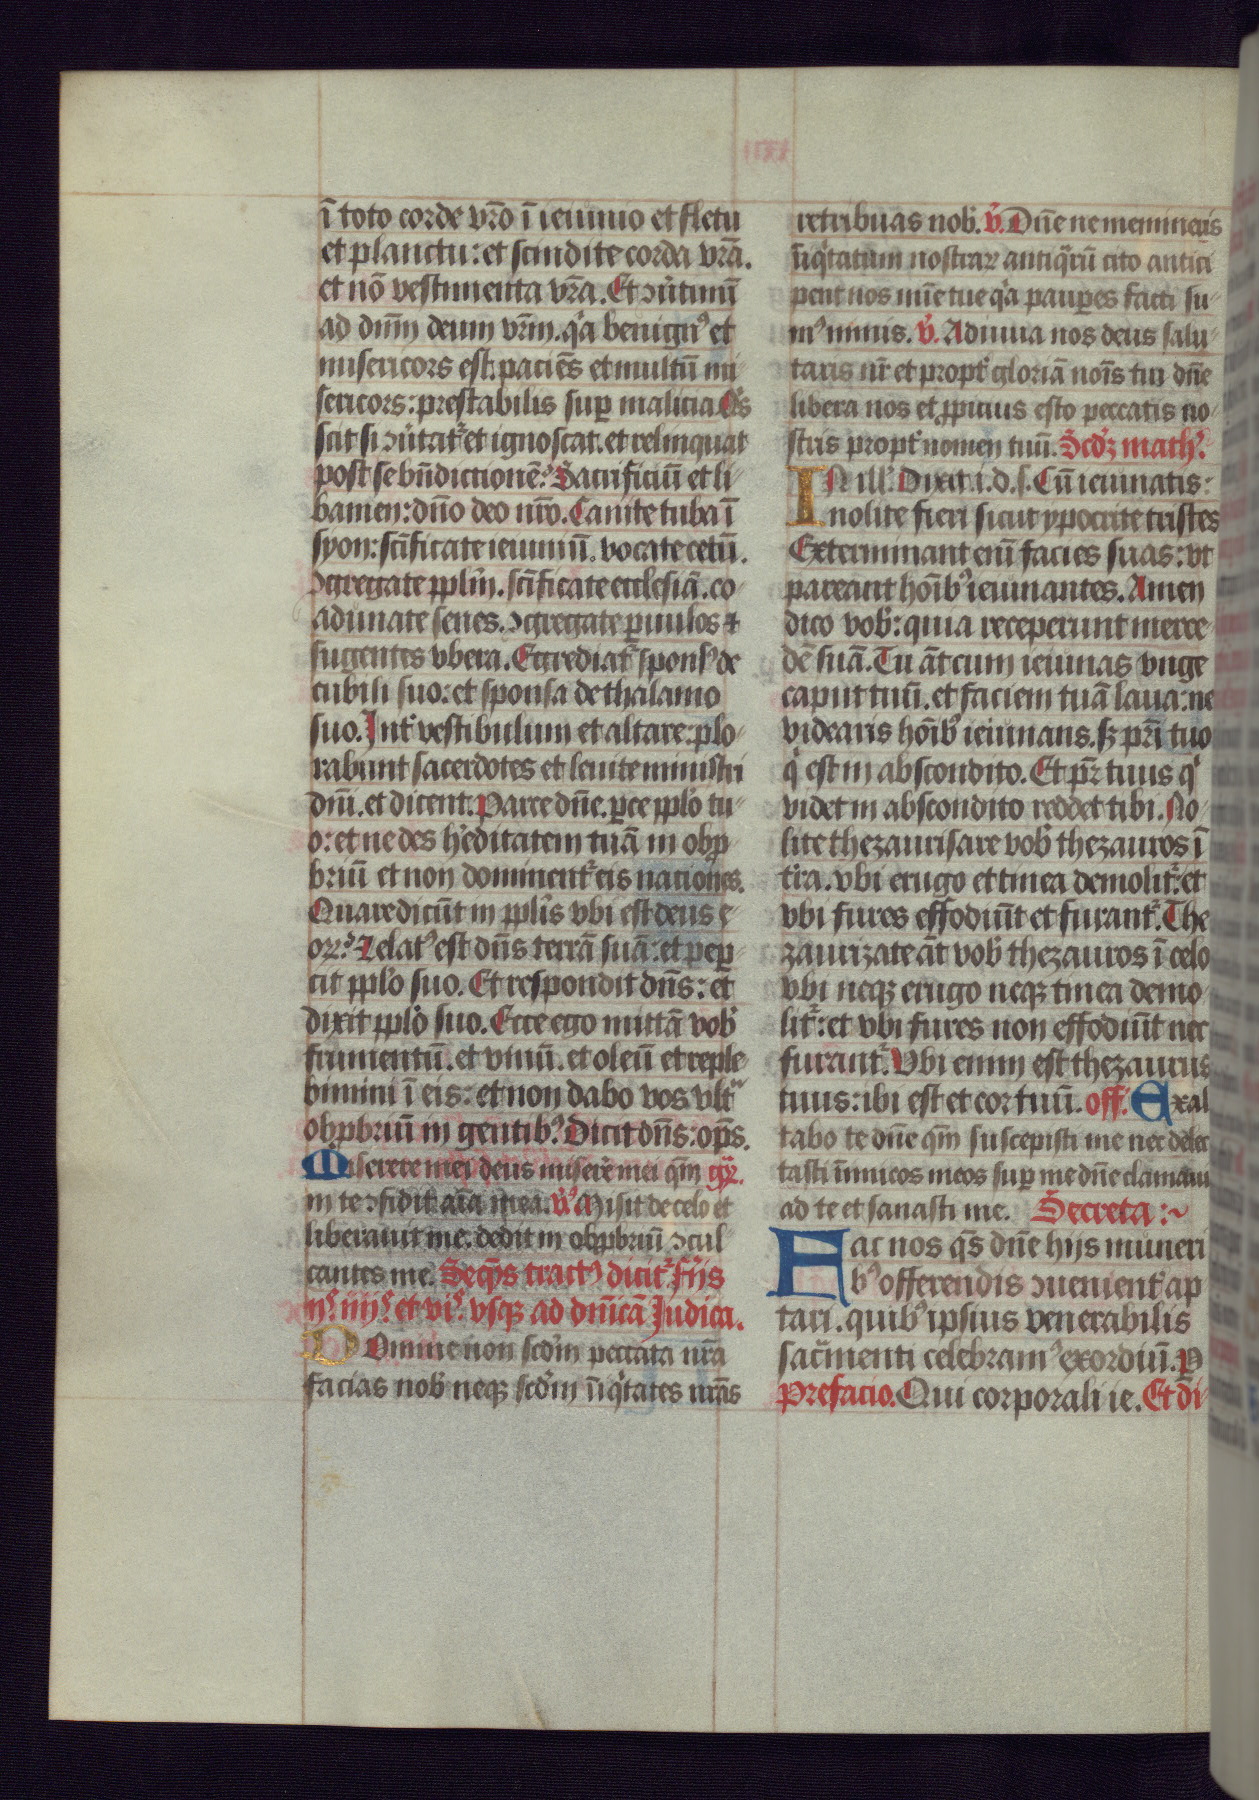 ī toto corde vr̄o ī ieiunio et fletu
et planctu: et scindite corda vr̄a.
et nō vestimenta vr̄a. Et ꝯůtimī
ad dn̄m deum vr̄m. qͥa benignꝰ et
misericors est. paciēs et multū mi-
sericors: prestabilis suꝑ malicia. Qͥs
scit si ꝯůtatͬ et ignoscat. et relinquat
post se bn̄dictionē.ˀ Sacrificiū et li-
bamen: dn̄o deo nr̄o. Canite tuba ī
syon: scīficate ieiuniū. vocate cetū.
ꝯgregate ppl̄m. scīficate ecclesiā. co-
adunate senes. ꝯgregate ꝑuulos ⁊
sugentes vbera. Egrediatͬ sponsꝰ de
cubili suo: et sponsa de thalamo
suo. Int̉ vestibulum et altare: plo-
rabunt sacerdotes et leuite ministri
dn̄i. et dicent. Parce dn̄e. ꝑce ppl̄o tu-
o: et ne des h̉editatem tuā in obp̱
briū et non dominentͬ eis naciones.
Quare dicūt in ppl̄is vbi est deus e-
oꝝ.ˀ Zelatꝰ est dn̄s terrā suā: et peꝑ-
cit ppl̄o suo. Et respondit dn̄s: et
dixit ppl̄o suo. Ecce ego mittā vob̉
frumentū. et vinū. et oleū et reple-
bimini ī eis: et non dabo vos vltͣ
obp̱briū in gentibꝰ. Dicit dn̄s: op̄s.
Miserere mei deus miser̄e mei qm̄ gr̄.
in te ꝯfidit aīa mea. v̉ꝰ Misit de celo et
liberauit me. dedit in obp̱briū ꝯcul-
cantes me. Seqn̄s tractꝯ dicitͬ fr̄ijs
ijͣ. iiijͣ. et viͣ. vsqꝫ ad dn̄icā Judica.
Domine non scd̄m peccata nr̄a
facias nob̉ neqꝫ scd̄m īiqͥtates nr̄as
retribuas nob̉. v̉. Dn̄e ne memineris
īiqͥtatum nostraꝝ antiqͣrū cito antici
pent nos mīe tue qͥa pauꝑes facti su-
mꝰ nimis. v̉. Adiuua nos deus salu-
taris nr̄ et propt̉ gloriā noīs tui dn̄e
libera nos et p̱picius esto peccatis no-
stris propt̉ nomen tuū. Scd̉ꝫ math̉.
IN ill̉. Dixit i. d. s. Cū ieiunatis:
nolite fieri sicut ypocrite tristes
Exterminant enī facies suas: vt
pareant hoībꝰ ieiunantes. Amen
dico vob̉: quia receperunt merce
dē suā. Tu āt cum ieiunas vnge
caput tuū. et faciem tuā laua: ne
videaris hoībꝰ ieiunans. sꝫ pr̄i tuo
qͥ est in abscondito. Et pr̄ tuus qͥ
videt in abscondito reddet tibi. No-
lite thezaurisare vob̉ thezauros ī
tr̄a. vbi erugo et tinea demolitͬ. et
vbi fures effodiūt et furantͬ. The
zaurizate āt vob̉ thezauros ī celo
vbi neqꝫ erugo neqꝫ tinea demo-
litͬ: et vbi fures non effodiūt nec
furantͬ. Vbi enim est thezaurus
tuus: ibi est et cor tuū. off. Exal
tabo te dn̄e qm̄ suscepisti me nec delec
tasti īimicos meos suꝑ me dn̄e clamaui
ad te et sanasti me. Secreta:~
Fac nos qͣs dn̄e hijs muneri
bꝰ offerendis ꝯuenient̉ ap
tari. quibꝰ ipsius venerabilis
sacͬmenti celebramꝰ exordiū. P
Prefacio. Qui corporali ie. Et di-